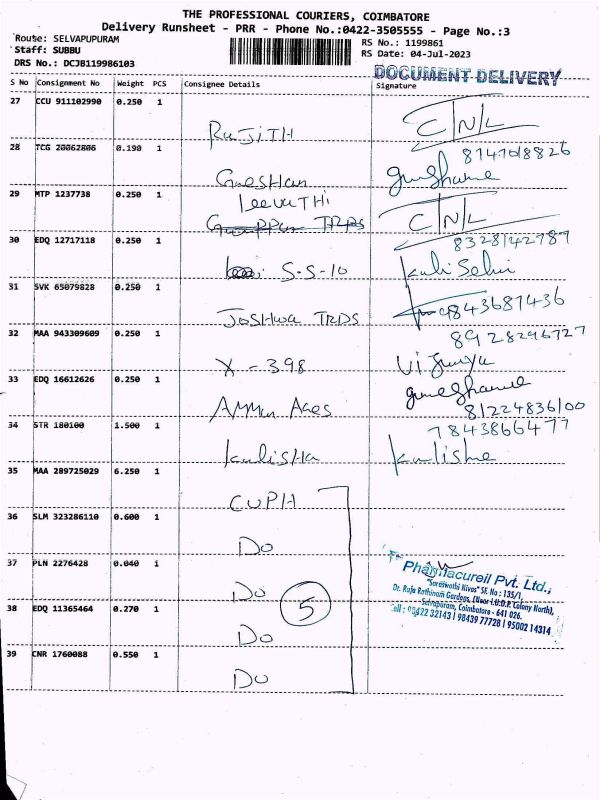 THE PROFESSIONAL COURIERS, COIMBATORE
Delivery Runsheet - PRR - Phone No.:0422-3505555 - Page No.:3
Route: SELVAPUPURAM
RS No.: 1199861
Staff: SUBBU
RS Date: 04-Jul-2023
DRS No.: DCJB119986103
DOCUMENT DELIVERY
S No Consignment No Weight PCS Consignee Details Signature
27 CCU 911102990 0.250 1
RAJITH C/N/L
28 TCG 20062806 0.190 1
8747018826
29 MTP 1237738 0.250 1
LeevaTHi
TRDS C/N/L
30 EDQ 12717118 0.250 1
8328142787
S-S-10
31 SVK 65079828 0.250 1
9843687436
JoSHwa TRDS
32 MAA 943309609 0.250 1
8928296727
X - 398
33 EDQ 16612626 0.250 1
81224836100
34 STR 180100 1.500 1
7843866477
KaliSHa
35 MAA 289725029 6.250 1
CUPH
36 SLM 323286110 0.600 1
Do
37 PLN 2276428 0.040 1
Pharmacureil Pvt. Ltd.,
"Saraswathi Nivas" SF. No : 135/1,
Dr. Raja Rathinam Gardens, (Near I.U.D.P. Colony North),
Selvapuram, Coimbatore - 641 026.
Cell : 93422 32143 | 98439 77728 | 95002 14314
Do
5
38 EDQ 11365464 0.270 1
Do
39 CNR 1760088 0.550 1
Do